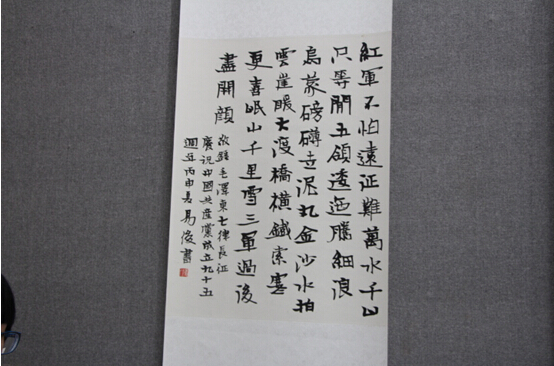 紅軍不怕遠征難萬水千山
只等閒五領逶迤騰細浪
烏蒙磅礴走泥丸金沙水拍
雲崖暖大渡橋橫鐵索寒
更喜岷山千里雪三軍過後
盡開顔
敬錄毛澤東七律長征
慶祝中國共産黨成立九十五
週年丙申易俊書